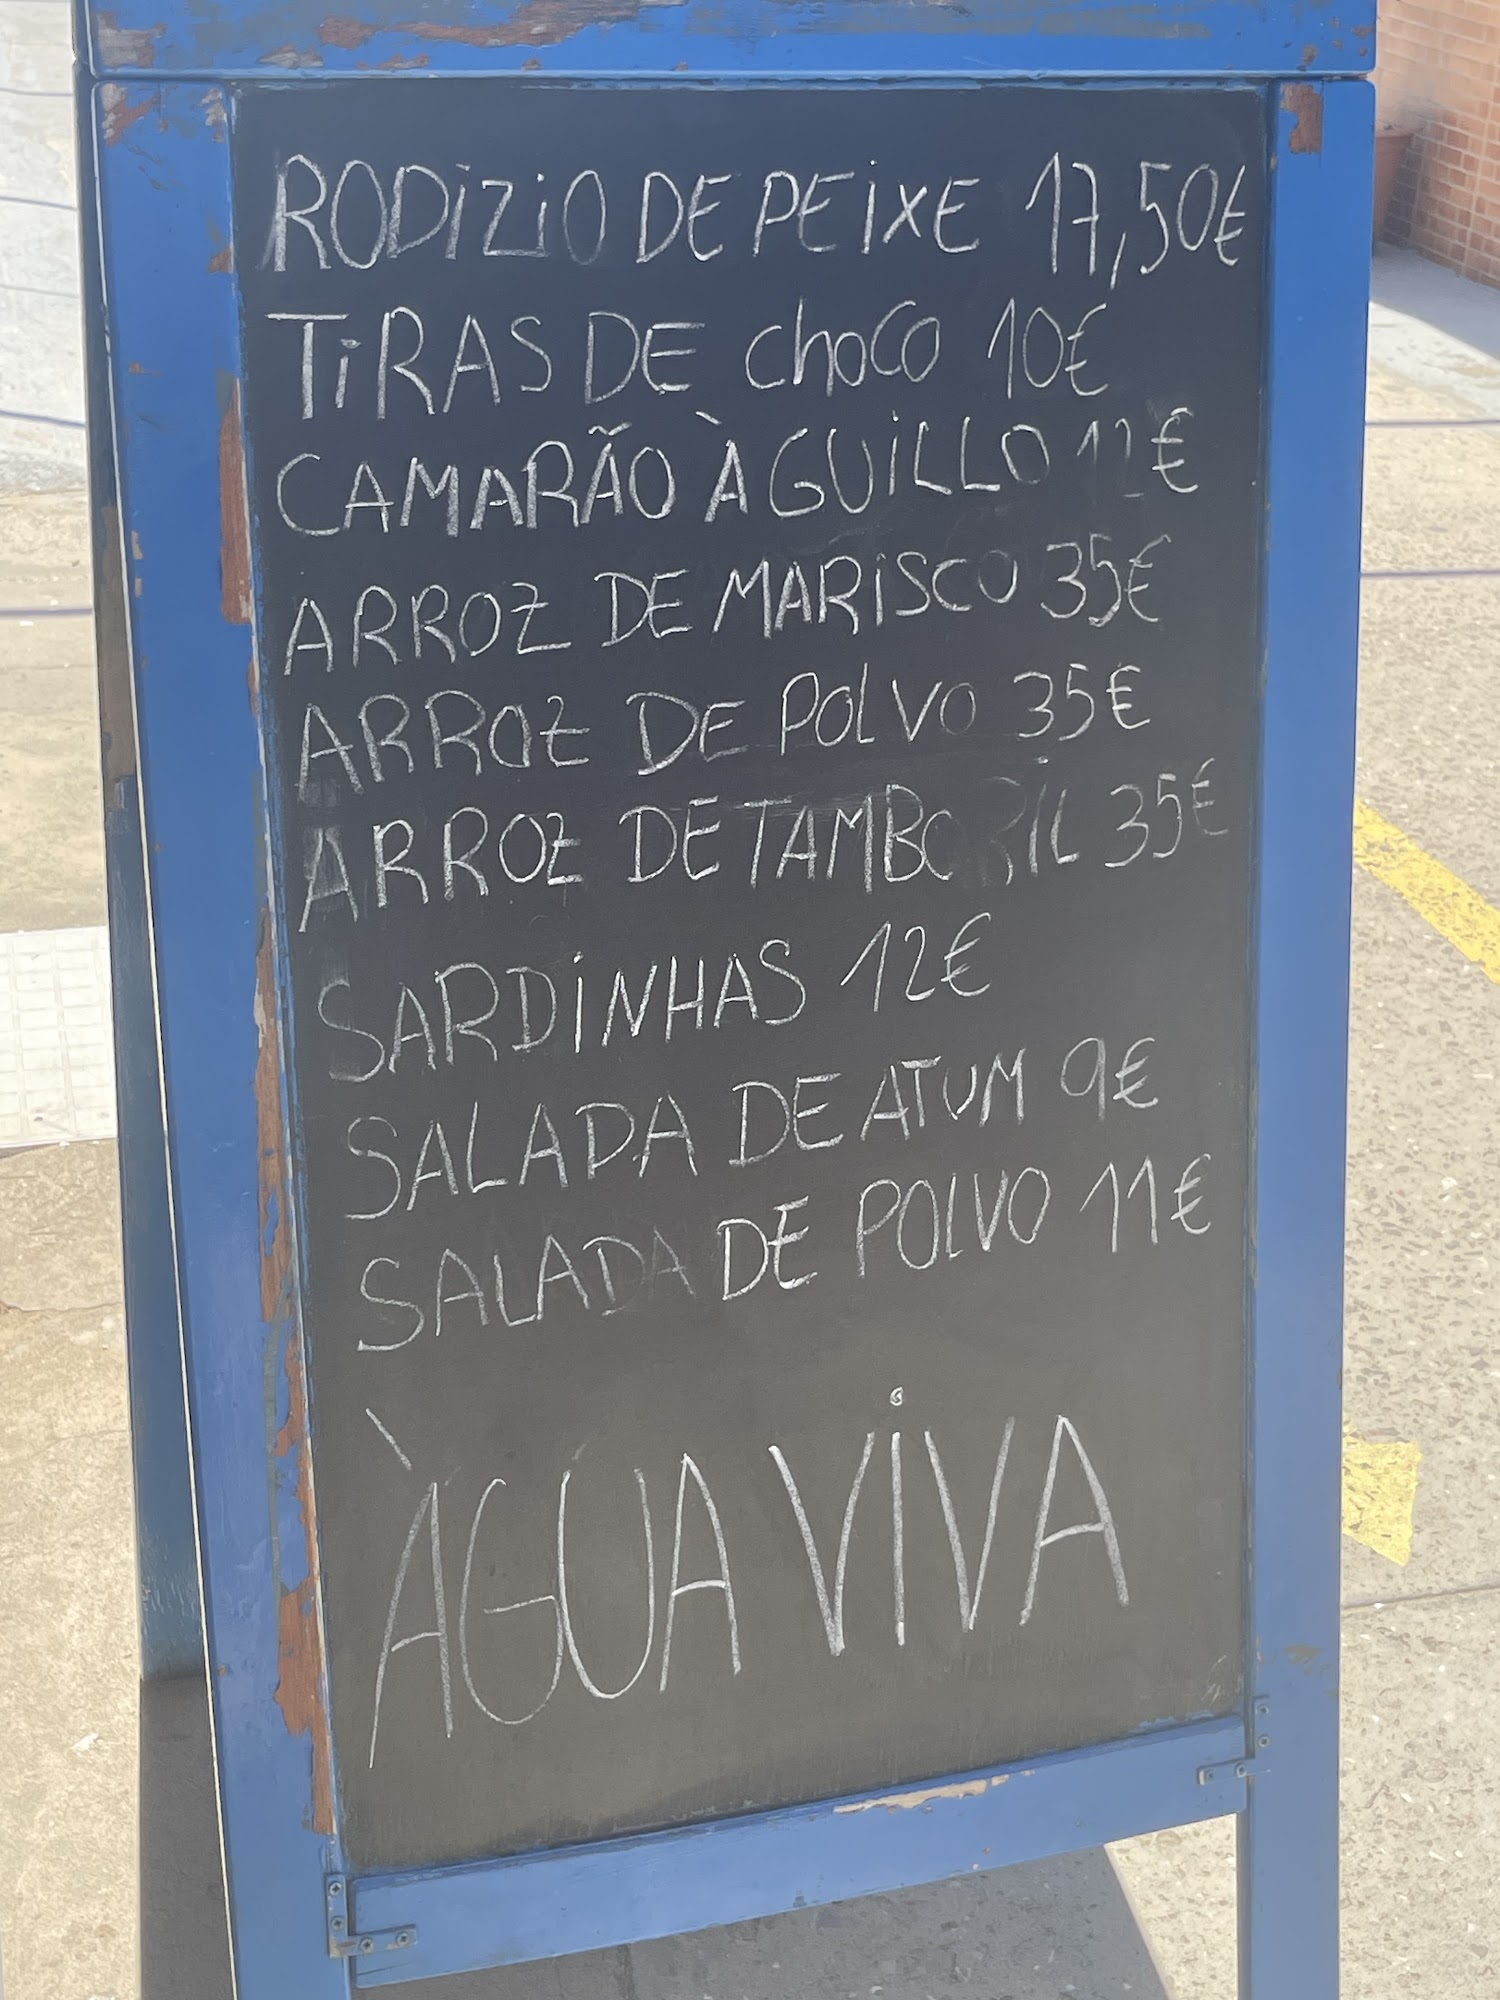 RODiZiO DE PEiXE 17,50€
TiRAS DE choco 10€
CAMARÃO À GUiLLO 12€
ARROZ DE MARiSCO 35€
ARROZ DE POLVO 35€
ARROZ DE TAMBORIL 35€
SARDiNHAS 12€
SALADA DE ATUM 9€
SALADA DE POLVO 11€
ÀGUA ViVA